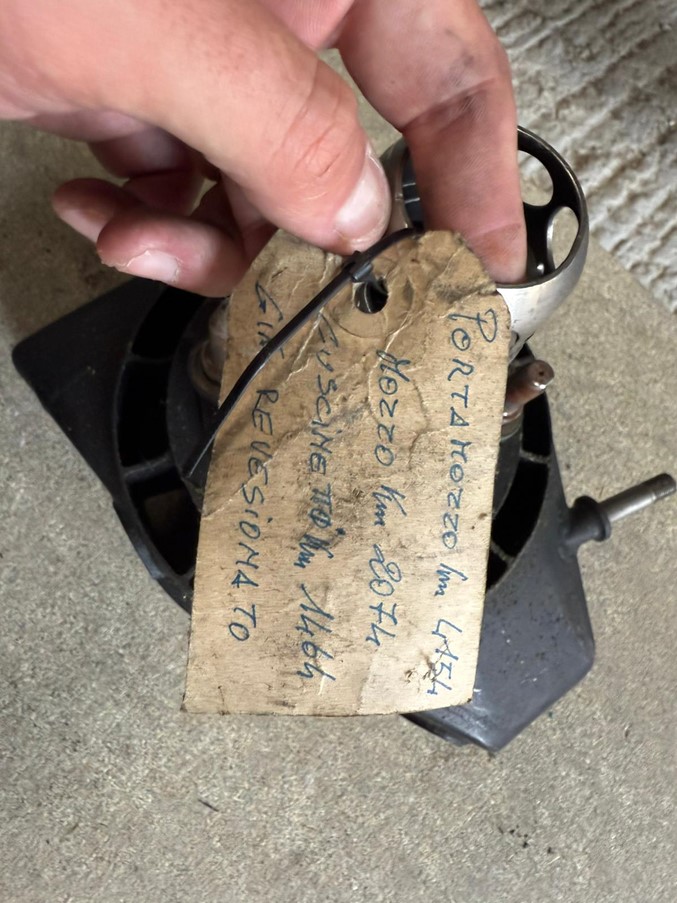 PORTAMOZZO Km 4154
MOZZO Km 2074
CUSCINETTO Km 1464
GIÀ REVESIONATO